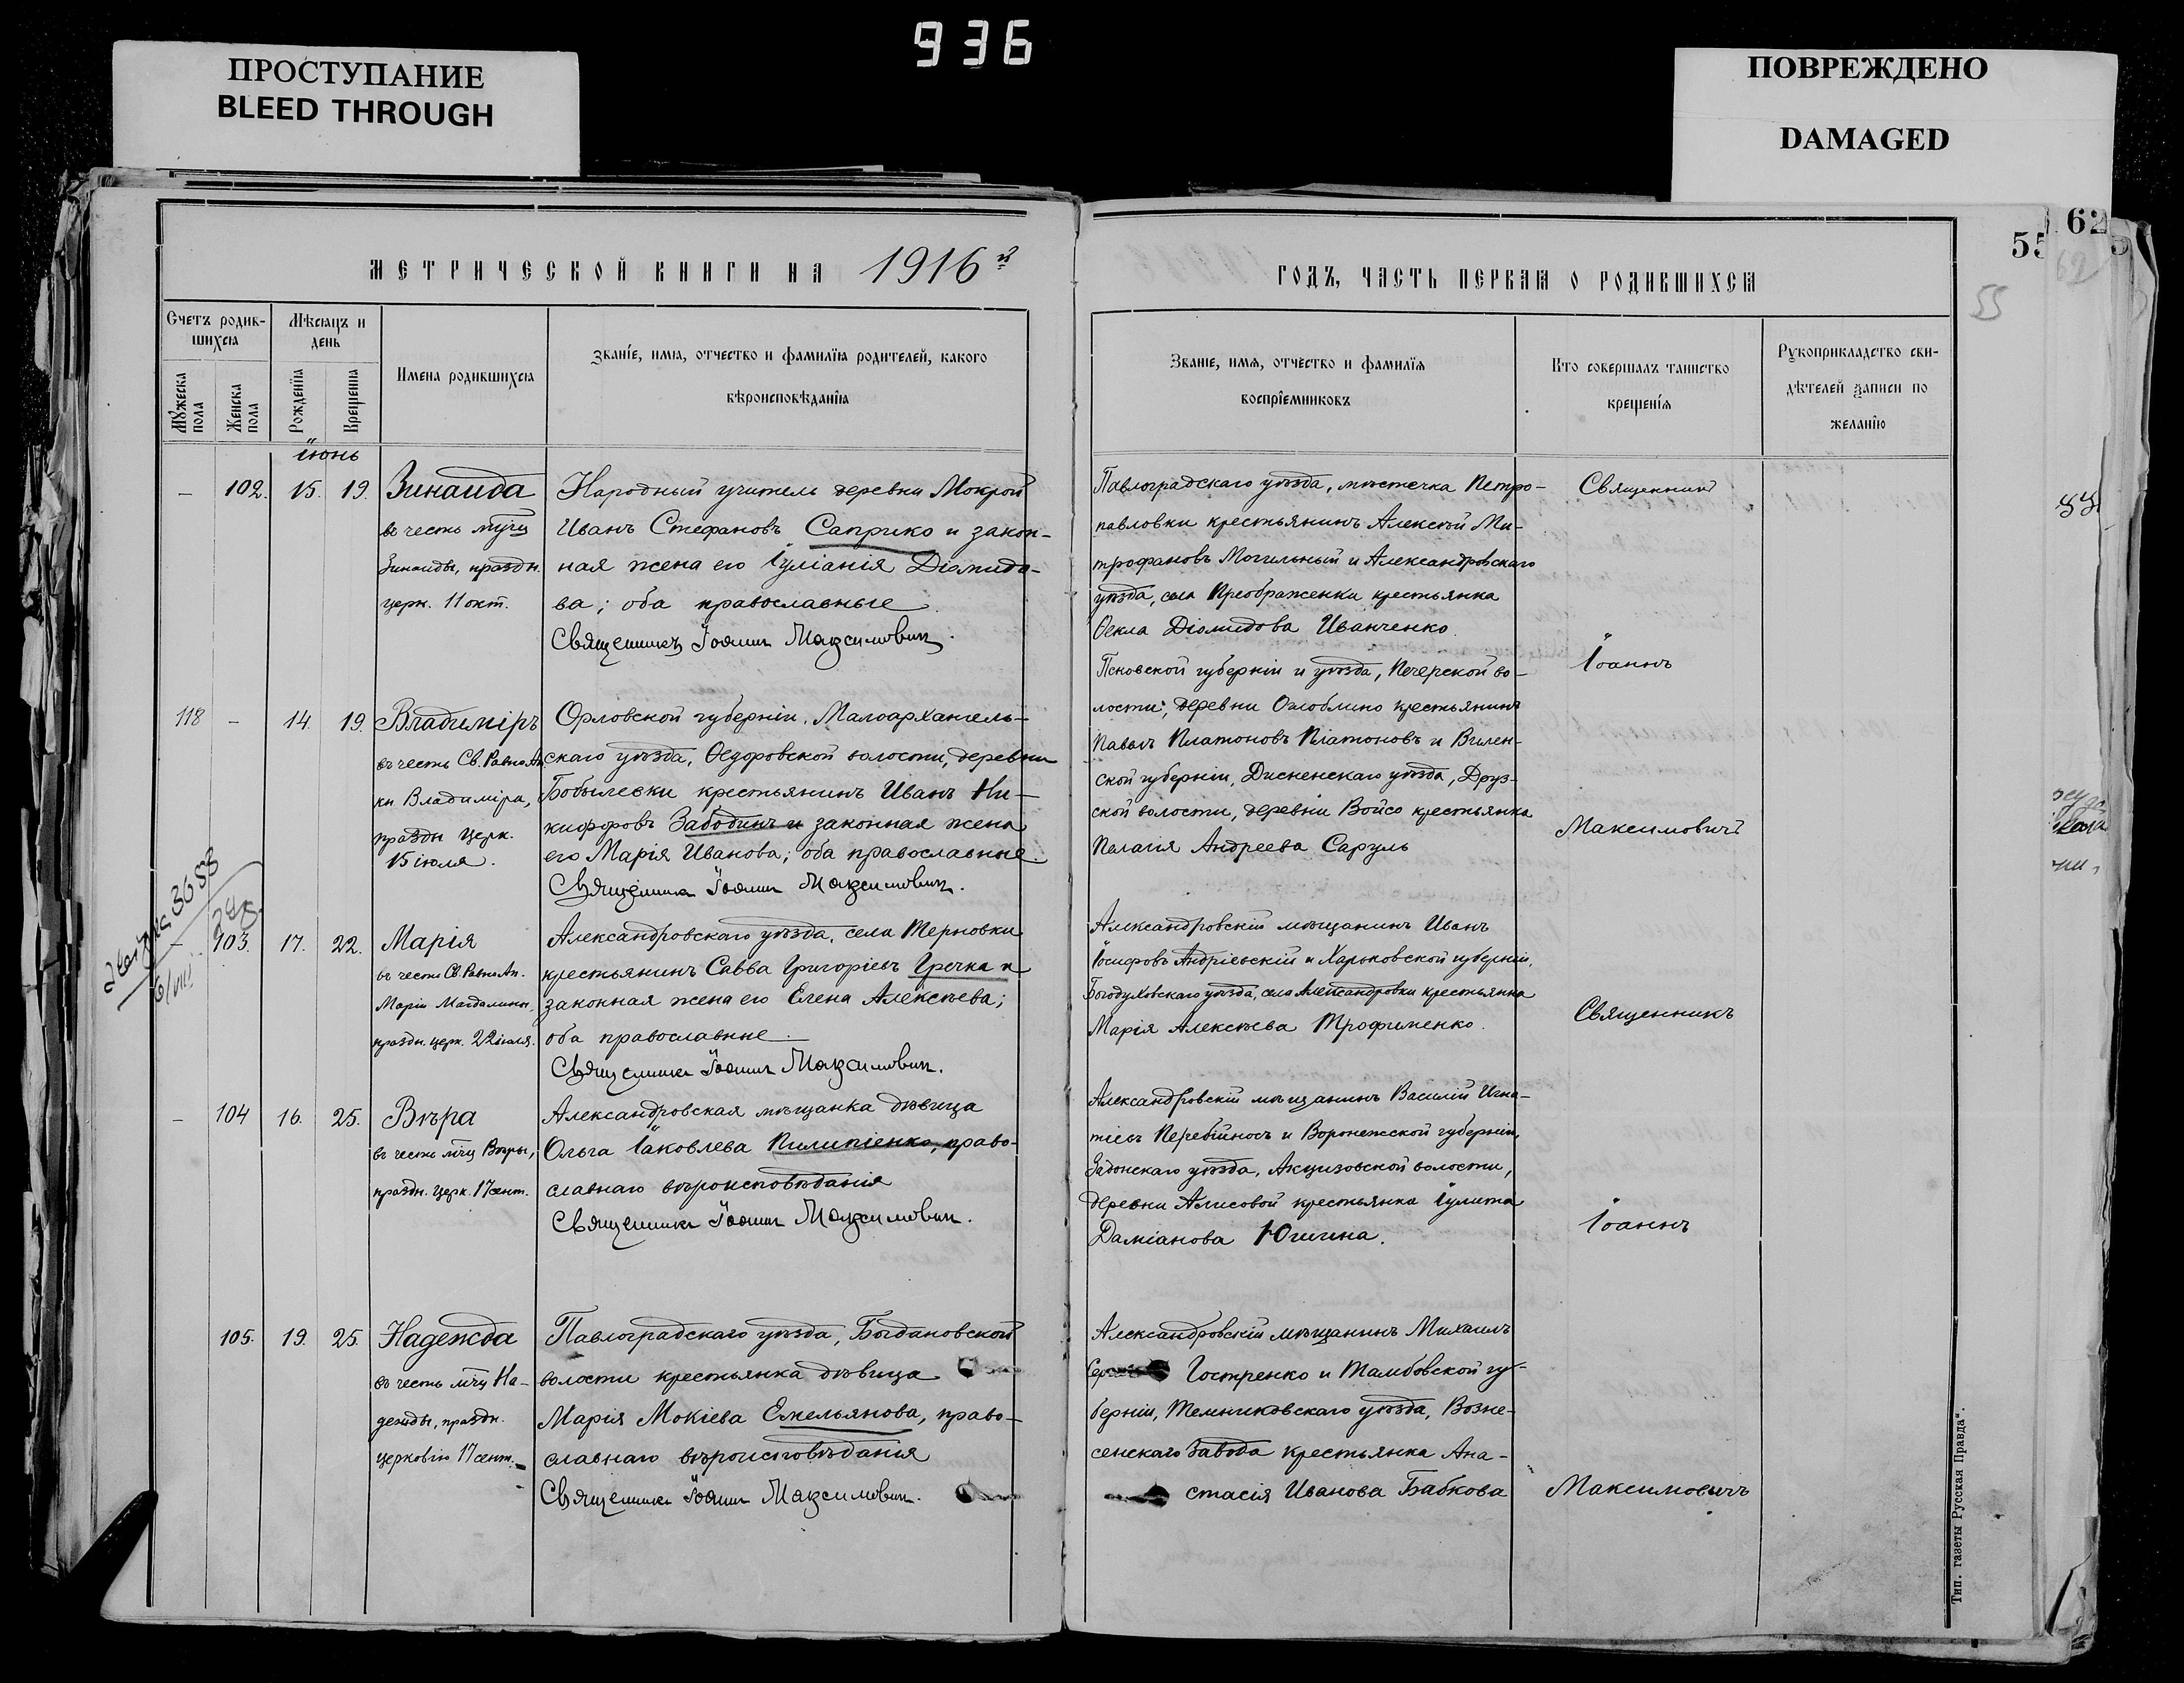 936
ПРОСТУПАНИЕ
BLEED THROUGH
ПОВРЕЖДЕНО
DAMAGED
МЕТРИЧЕСКОЙ КНИГИ НА 1916 й
Счетъ родив-
шихся
Мѣсяцъ и
день
Мужеска
пола
Женска
пола
Рожденія
Крещенія
Имена родившихся
Званіе, имя, отчество и фамилія родителей, какого
вѣроисповѣданія
іюнь
— 102. 15. 19. Зинаида Народный учитель деревни Мокрой
въ честь муч Иванъ Стефановъ Саприко и закон-
Зинаиды, праздн. ная жена его Іуліанія Діомидо-
церк. 11 окт. ва; оба православные
Священникъ Іоаннъ Максимовичъ.
118 — 14. 19. Владиміръ Орловской губерніи, Малоархангель-
въ честь Св. Равно Ап скаго уѣзда, Ѳедоровской волости, деревни
кн. Владиміра, Бобылевки крестьянинъ Иванъ Ни-
праздн церк. кифоровъ Забодинъ и законная жена
15 іюля. его Марія Иванова; оба православные.
Священникъ Іоаннъ Максимовичъ.
3688
6/VIII
— 103. 17. 22. Марія Александровскаго уѣзда, села Терновки
въ честь Св. Равно Ап. крестьянинъ Савва Григоріевъ Гречка и
Маріи Магдалины, законная жена его Елена Алексѣева;
праздн. церк. 22 іюля. оба православные.
Священникъ Іоаннъ Максимовичъ.
— 104 16. 25. Вѣра Александровская мѣщанка дѣвица
въ честь мчц Вѣры, Ольга Іаковлева Пилипіенко, право-
праздн. церк. 17 сент. славнаго вѣроисповѣданія
Священникъ Іоаннъ Максимовичъ.
105. 19. 25. Надежда Павлоградскаго уѣзда, Богдановской
въ честь мчц На- волости крестьянка дѣвица
дежды, праздн. Марія Мокіева Емельянова, право-
церковію 17 сент. славнаго вѣроисповѣданія
Священникъ Іоаннъ Максимовичъ.
ГОДЪ, ЧАСТЬ ПЕРВАЯ О РОДИВШИХСЯ
55
62
55
62
Званіе, имя, отчество и фамилія
воспріемниковъ
Кто совершалъ таинство
крещенія
Рукоприкладство сви-
дѣтелей записи по
желанію
Павлоградскаго уѣзда, мѣстечка Петро-
павловки крестьянинъ Алексѣй Ми-
трофановъ Могильный и Александровскаго
уѣзда, села Преображенки крестьянка
Ѳекла Діомидова Иванченко.
Священникъ
Псковской губерніи и уѣзда, Печерской во-
лости, деревни Оглоблино крестьянинъ
Павелъ Платоновъ Платоновъ и Вилен-
ской губерніи, Дисненскаго уѣзда, Друз-
ской волости, деревни Войсо крестьянка
Пелагія Андреева Саруль
Іоаннъ
Максимовичъ
Александровскій мѣщанинъ Иванъ
Іосифовъ Андріевскій и Харьковской губерніи,
Богодуховскаго уѣзда, села Александровки крестьянка
Марія Алексѣева Трофименко.
Священникъ
Александровскій мѣщанинъ Василій Игна-
тіевъ Перебійносъ и Воронежской губерніи,
Задонскаго уѣзда, Акцизовской волости,
деревни Алисовой крестьянка Іулита
Даміанова Югина.
Іоаннъ
Александровскій мѣщанинъ Михаилъ
Гостренко и Тамбовской гу-
берніи, Темниковскаго уѣзда, Возне-
сенскаго завода крестьянка Ана-
стасія Иванова Бабкова
Максимовичъ
Тип. газеты „Русская Правда“.